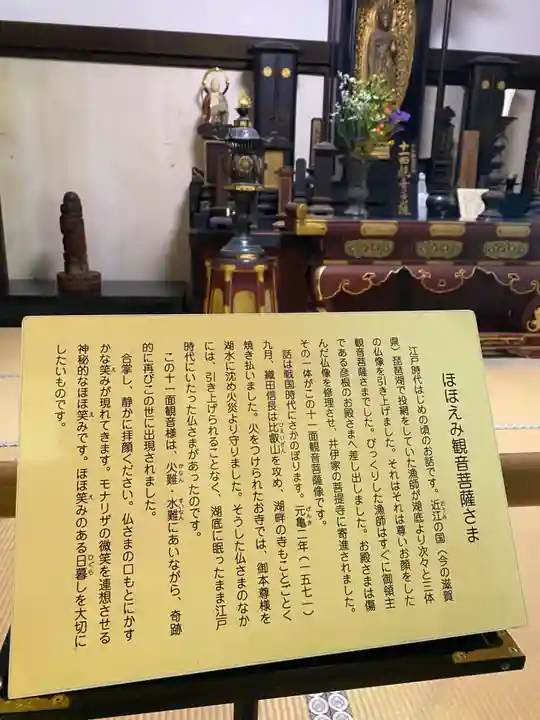 ほほえみ観音菩薩さま
江戸時代はじめの頃のお話です。近江の国（今の滋賀
県）琵琶湖で投網をしていた漁師が湖底より次々と三体
の仏像を引き上げました。それはそれは尊いお顔をした
観音菩薩さまでした。びっくりした漁師はすぐに御領主
である彦根のお殿さまへ差し出しました。お殿さまは傷
んだ仏像を修理させ、井伊家の菩提寺に寄進されました。
その一体がこの十一面観音菩薩像です。
話は戦国時代にさかのぼります。元亀二年（一五七一）
九月、織田信長は比叡山を攻め、湖畔の寺もことごとく
焼き払いました。火をつけられたお寺では、御本尊様を
湖水に沈め火災より守りました。そうした仏さまのなか
には、引き上げられることなく、湖底に眠ったまま江戸
時代にいたった仏さまがあったのです。
この十一面観音様は、火難・水難にあいながら、奇跡
的に再びこの世に出現されました。
合掌し、静かに拝顔ください。仏さまの口もとにかす
かな笑みが現れてきます。モナリザの微笑を連想させる
神秘的なほほ笑みです。ほほ笑みのある日暮しを大切に
したいものです。
十一面観世音菩薩